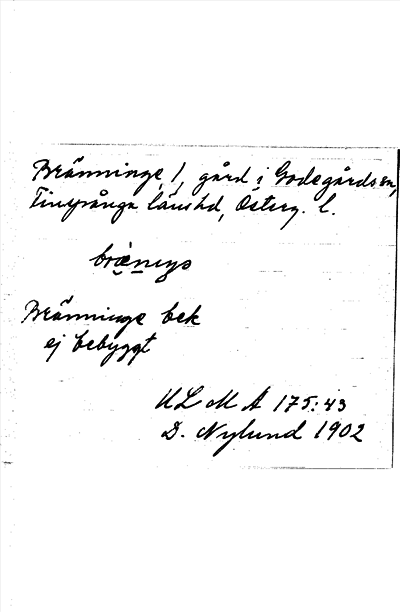 Bränninge 1, gård i Godegårds sn,
Finspånga länshd, Österg. l.
bræ̀neŋə
Bränninge bek
ej bebyggt
ULMA 175:43
D. Nylund 1902